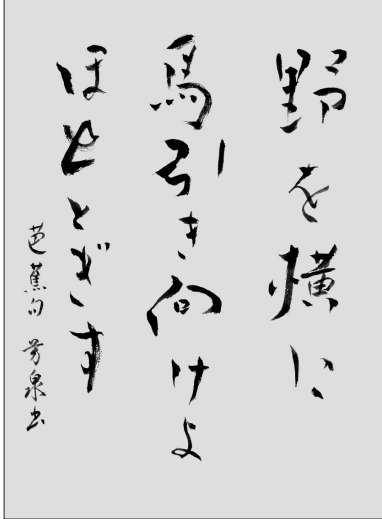 野を横に
馬引き向けよ
ほとゝぎす
芭蕉句 芳泉书